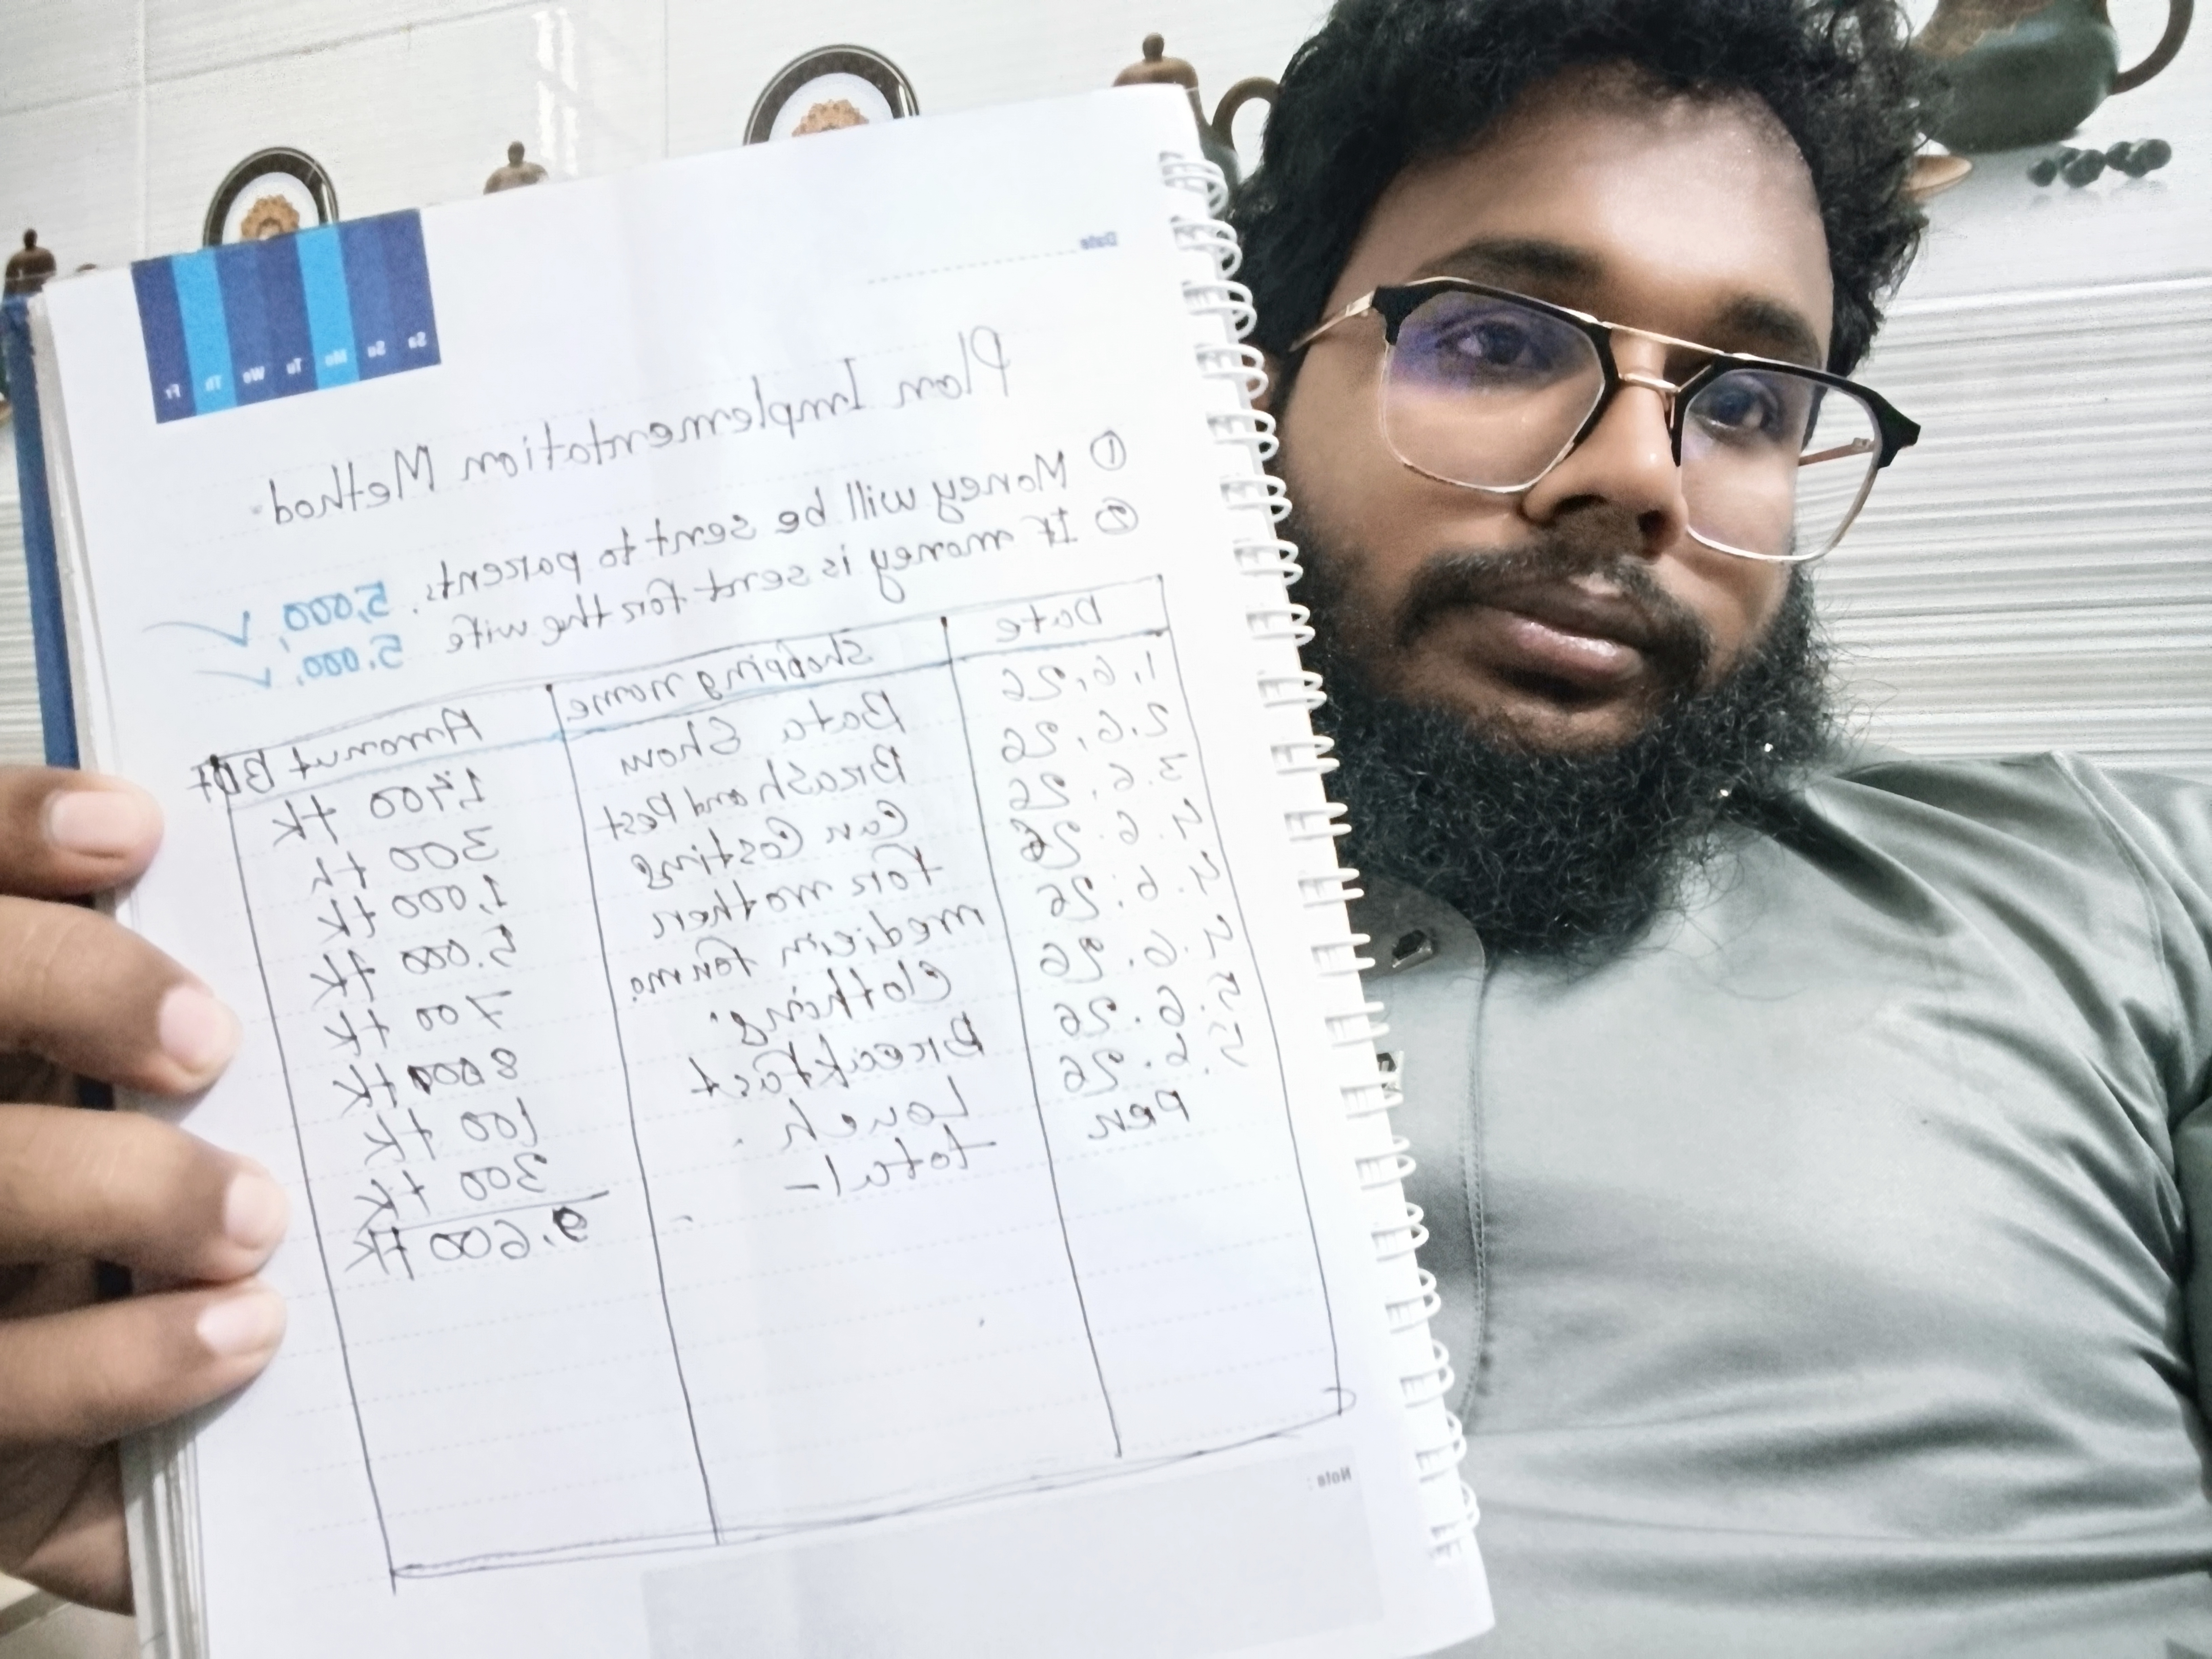 Date
Sa Su Mo Tu We Th Fr
Plan Implementation Method-
① Money will be sent to parents. 5,000,
② If money is sent for the wife 5.000,
Date Shopping name Amonut BDT
1,6,26 Bata Show 1,400 tk
2.6,26 Brash and Pest 300 tk
3.6.26 Can Costing 1,000 tk
4.6.26 for mother 5.000 tk
4.6.26 medicin for me 700 tk
4.6.26 Clothing. 8000 tk
5.6.26 Breakfast 100 tk
5.6.26 Lounch. 300 tk
Per total- 9.600 tk
Note :